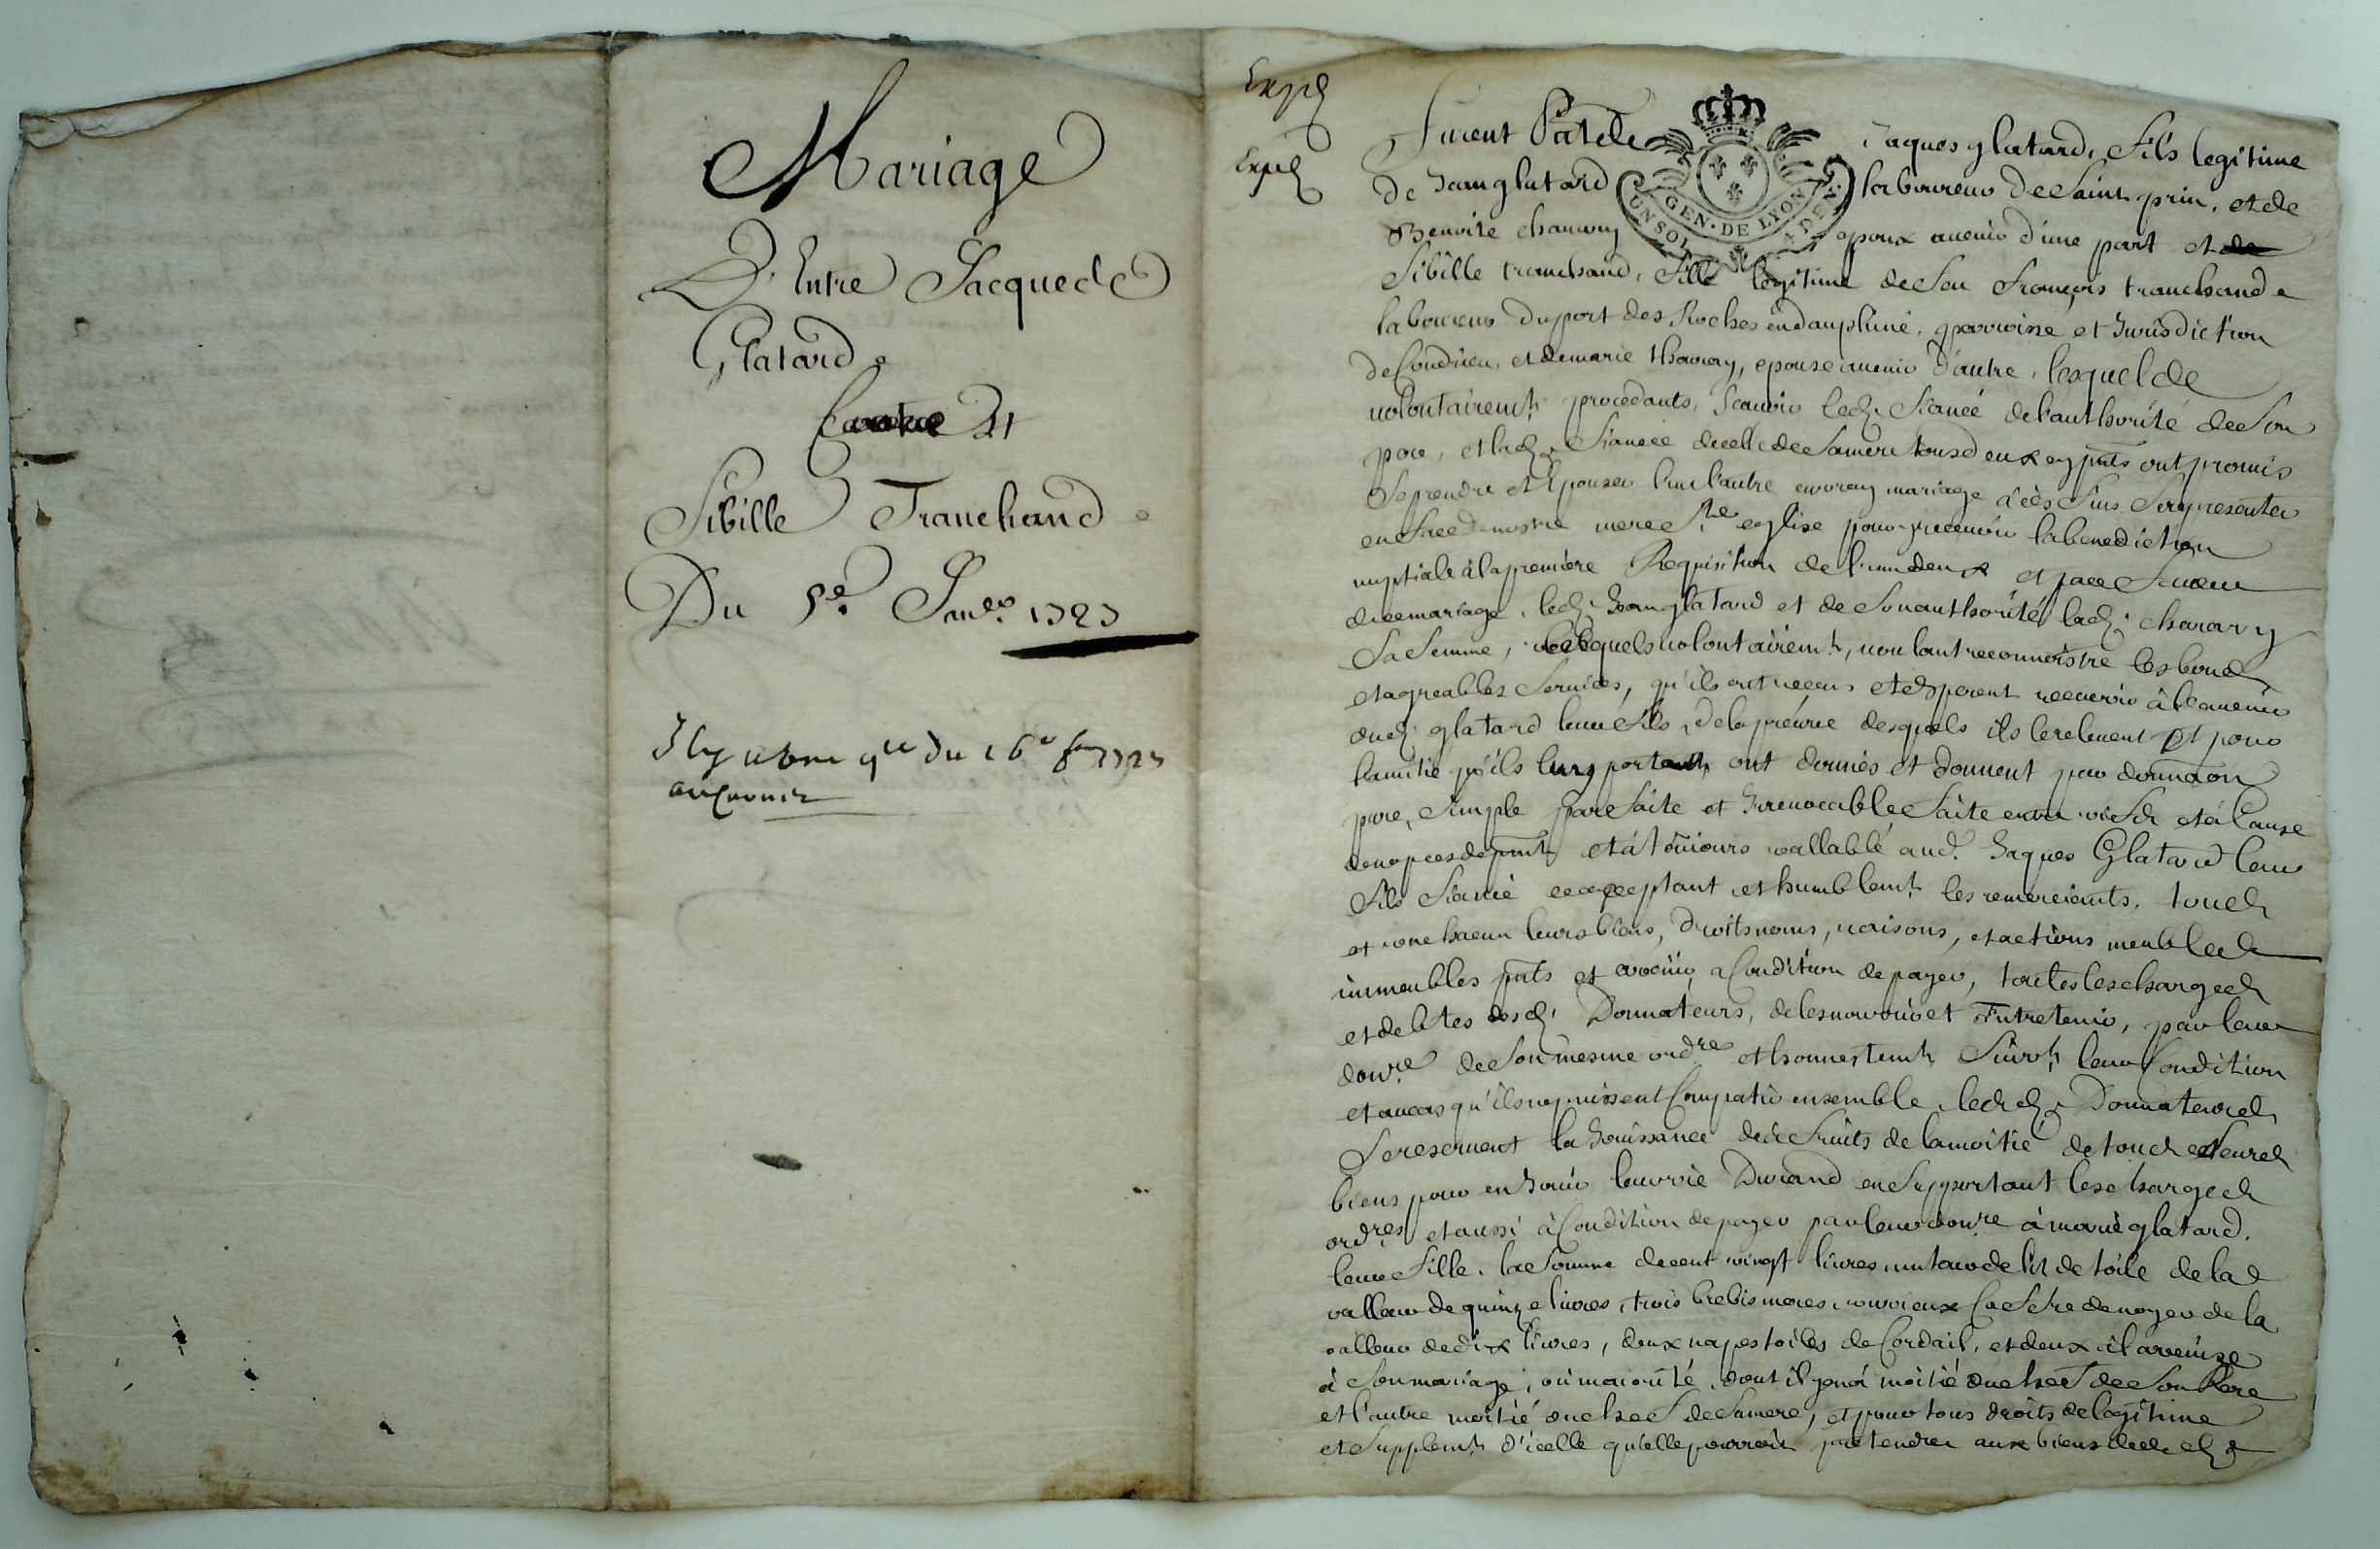 Mariage
D'Entre Jacques
Glatard
Et
Sibille Tranchand
Du 5e. Janer. 1727
Il y a une qce du 16e 1727
Exped
Exped
Furent Patele Jaques glatard, fils legitime
de Jean glatard laboureur de Saint prin, et de
Benoite charvay epoux avenir d'une part et de
Sibille tranchand, fille legitime de feu françois tranchand
laboureur du port des Roches en dauphiné, parroisse et Jurisdiction
de Condrieu, et de marie thavay, epouse avenir d'autre, lesquels
volontairemt. procedants, Scavoir led. fiancé de l'authorité de Son
pere, et lad. fiancée de celle de Sa mere tous deux cy pnts ont promis
Se prendre et Epouser l'un l'autre en vray mariage à ces fins Se representer
en face de nostre mere Ste eglise pour y recevoir la benediction
nuptiale à la premiere Requisition de l'un deux et en faveur
dice mariage, led. Jean glatard et de Son authorité lad. charavy
Sa femme, lesquels volontairemt., voulant reconnoistre les bons
et agreables Services, qu'ils ont receus et esperent recevoir à l'avenir
dud. glatard leur fils, de la preuve desquels ils le relevent Et pour
l'amitié qu'ils luy portent, ont donnés et donnent par donnaon
pure, Simple parfaite et Irrevocable faite entre vifs et à Cause
de nopces de pnt et à toujours vallable aud. Jaques Glatard leur
fils fiancé ce acceptant et humblemt. les remerciants, tous
et un chacun leurs biens, droits noms, raisons, et actions meubles
immeubles pnts et avenir, à Condition de payer, toutes les charges
et debtes desd. Donnateurs, de les nourrir et Entretenir, par leur
donre. de Son mesme ordre et honnestemt. Suivt. leur Condition
et au cas qu'ils ne puissent Compatir ensemble, lesd. Donnateurs
Se reservent la Jouissance des fruits de la moitié de tous leurs
biens pour en Jouir leur vie Durand en Supportant les charges
ordres. et aussi à Condition de payer par leur donre à marie glatard,
leur fille, la Somme de cent vingt livres, un tour de lit de toile de la
valleur de quinze livres, trois brebis meres, un vieux Coffre de noyer de la
valleur de dix livres, deux napes toiles de Cordail, et deux à l'arveüse
à Son mariage, ou majorité, dont il y en a moitié du chef de Son Pere
et l'autre moitié du chef de Sa mere, et pour tous droits de legitime
et Supplemt. d'icelle qu'elle pourroit pretendre aux biens desd.
GEN. DE LYON
UN SOL